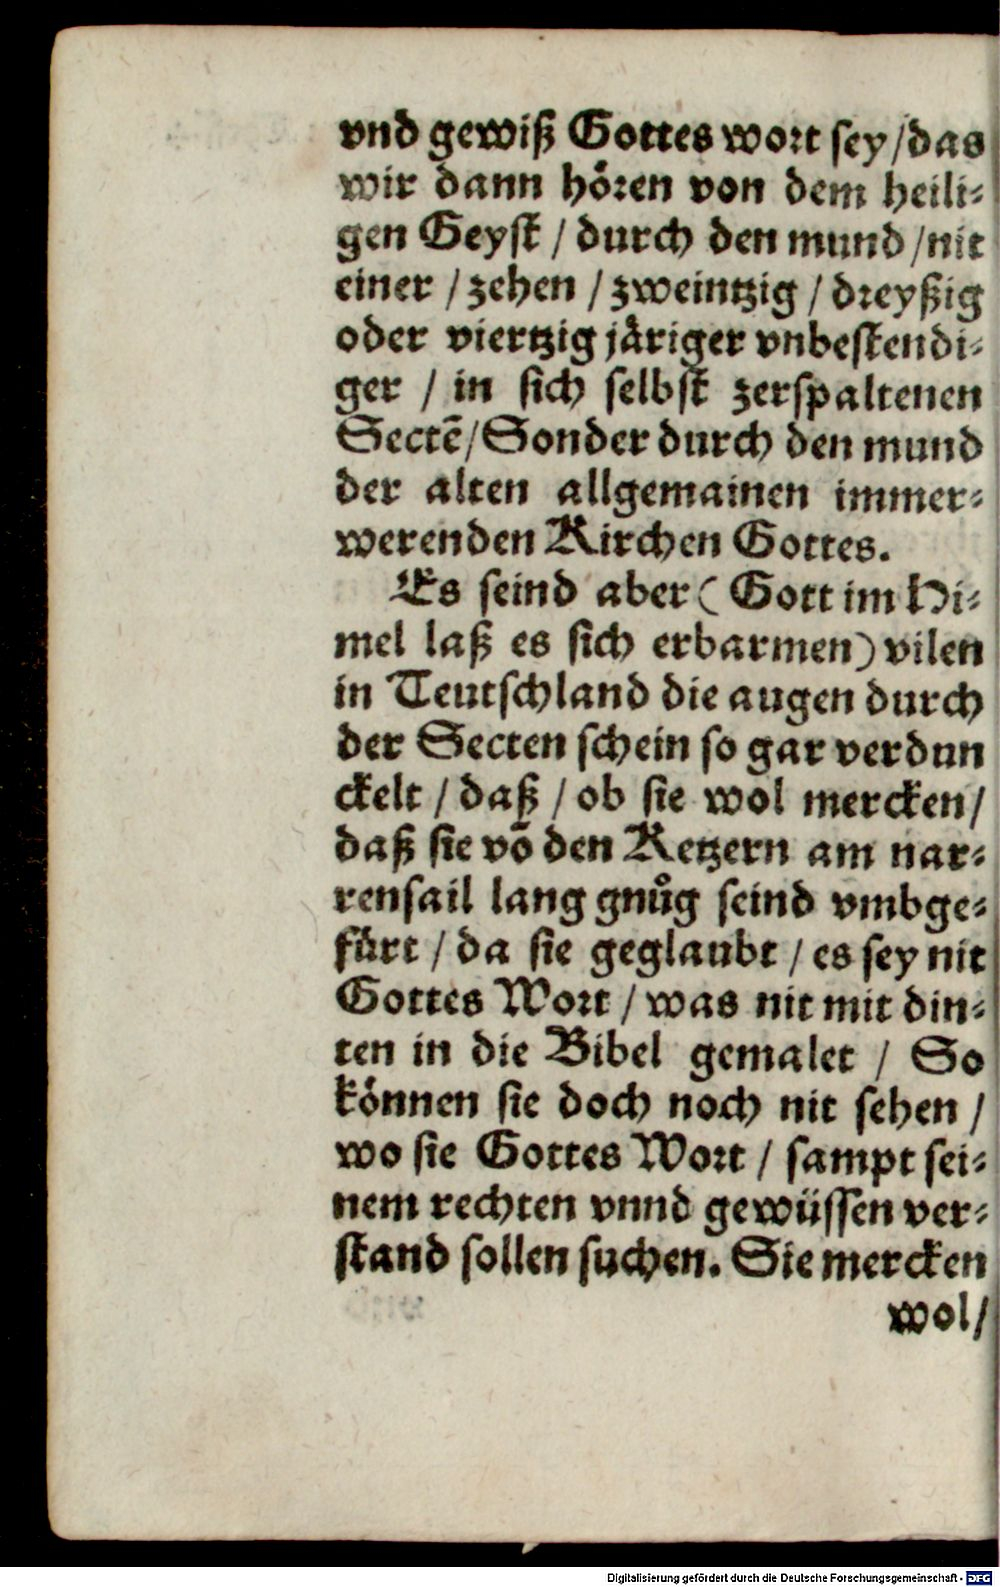 vnd gewiß Gottes wort sey/das
wir dann hören von dem heili-
gen Geyst / durch den mund /nit
einer / zehen / zweintzig / dreyßig
oder viertzig järiger vnbestendi-
ger / in sich selbst zerspaltenen
Sectē/Sonder durch den mund
der alten allgemainen immer-
werenden Kirchen Gottes.
Es seind aber (Gott im Hi-
mel laß es sich erbarmen) vilen
in Teutschland die augen durch
der Secten schein so gar verdun
ckelt / daß / ob sie wol mercken/
daß sie vō den Ketzern am nar-
rensail lang gnůg seind vmbge-
fürt / da sie geglaubt / es sey nit
Gottes Wort / was nit mit din-
ten in die Bibel gemalet / So
können sie doch noch nit sehen /
wo sie Gottes Wort / sampt sei-
nem rechten vnnd gewüssen ver-
stand sollen suchen. Sie mercken
wol/
Digitalisierung gefördert durch die Deutsche Forschungsgemeinschaft - DFG